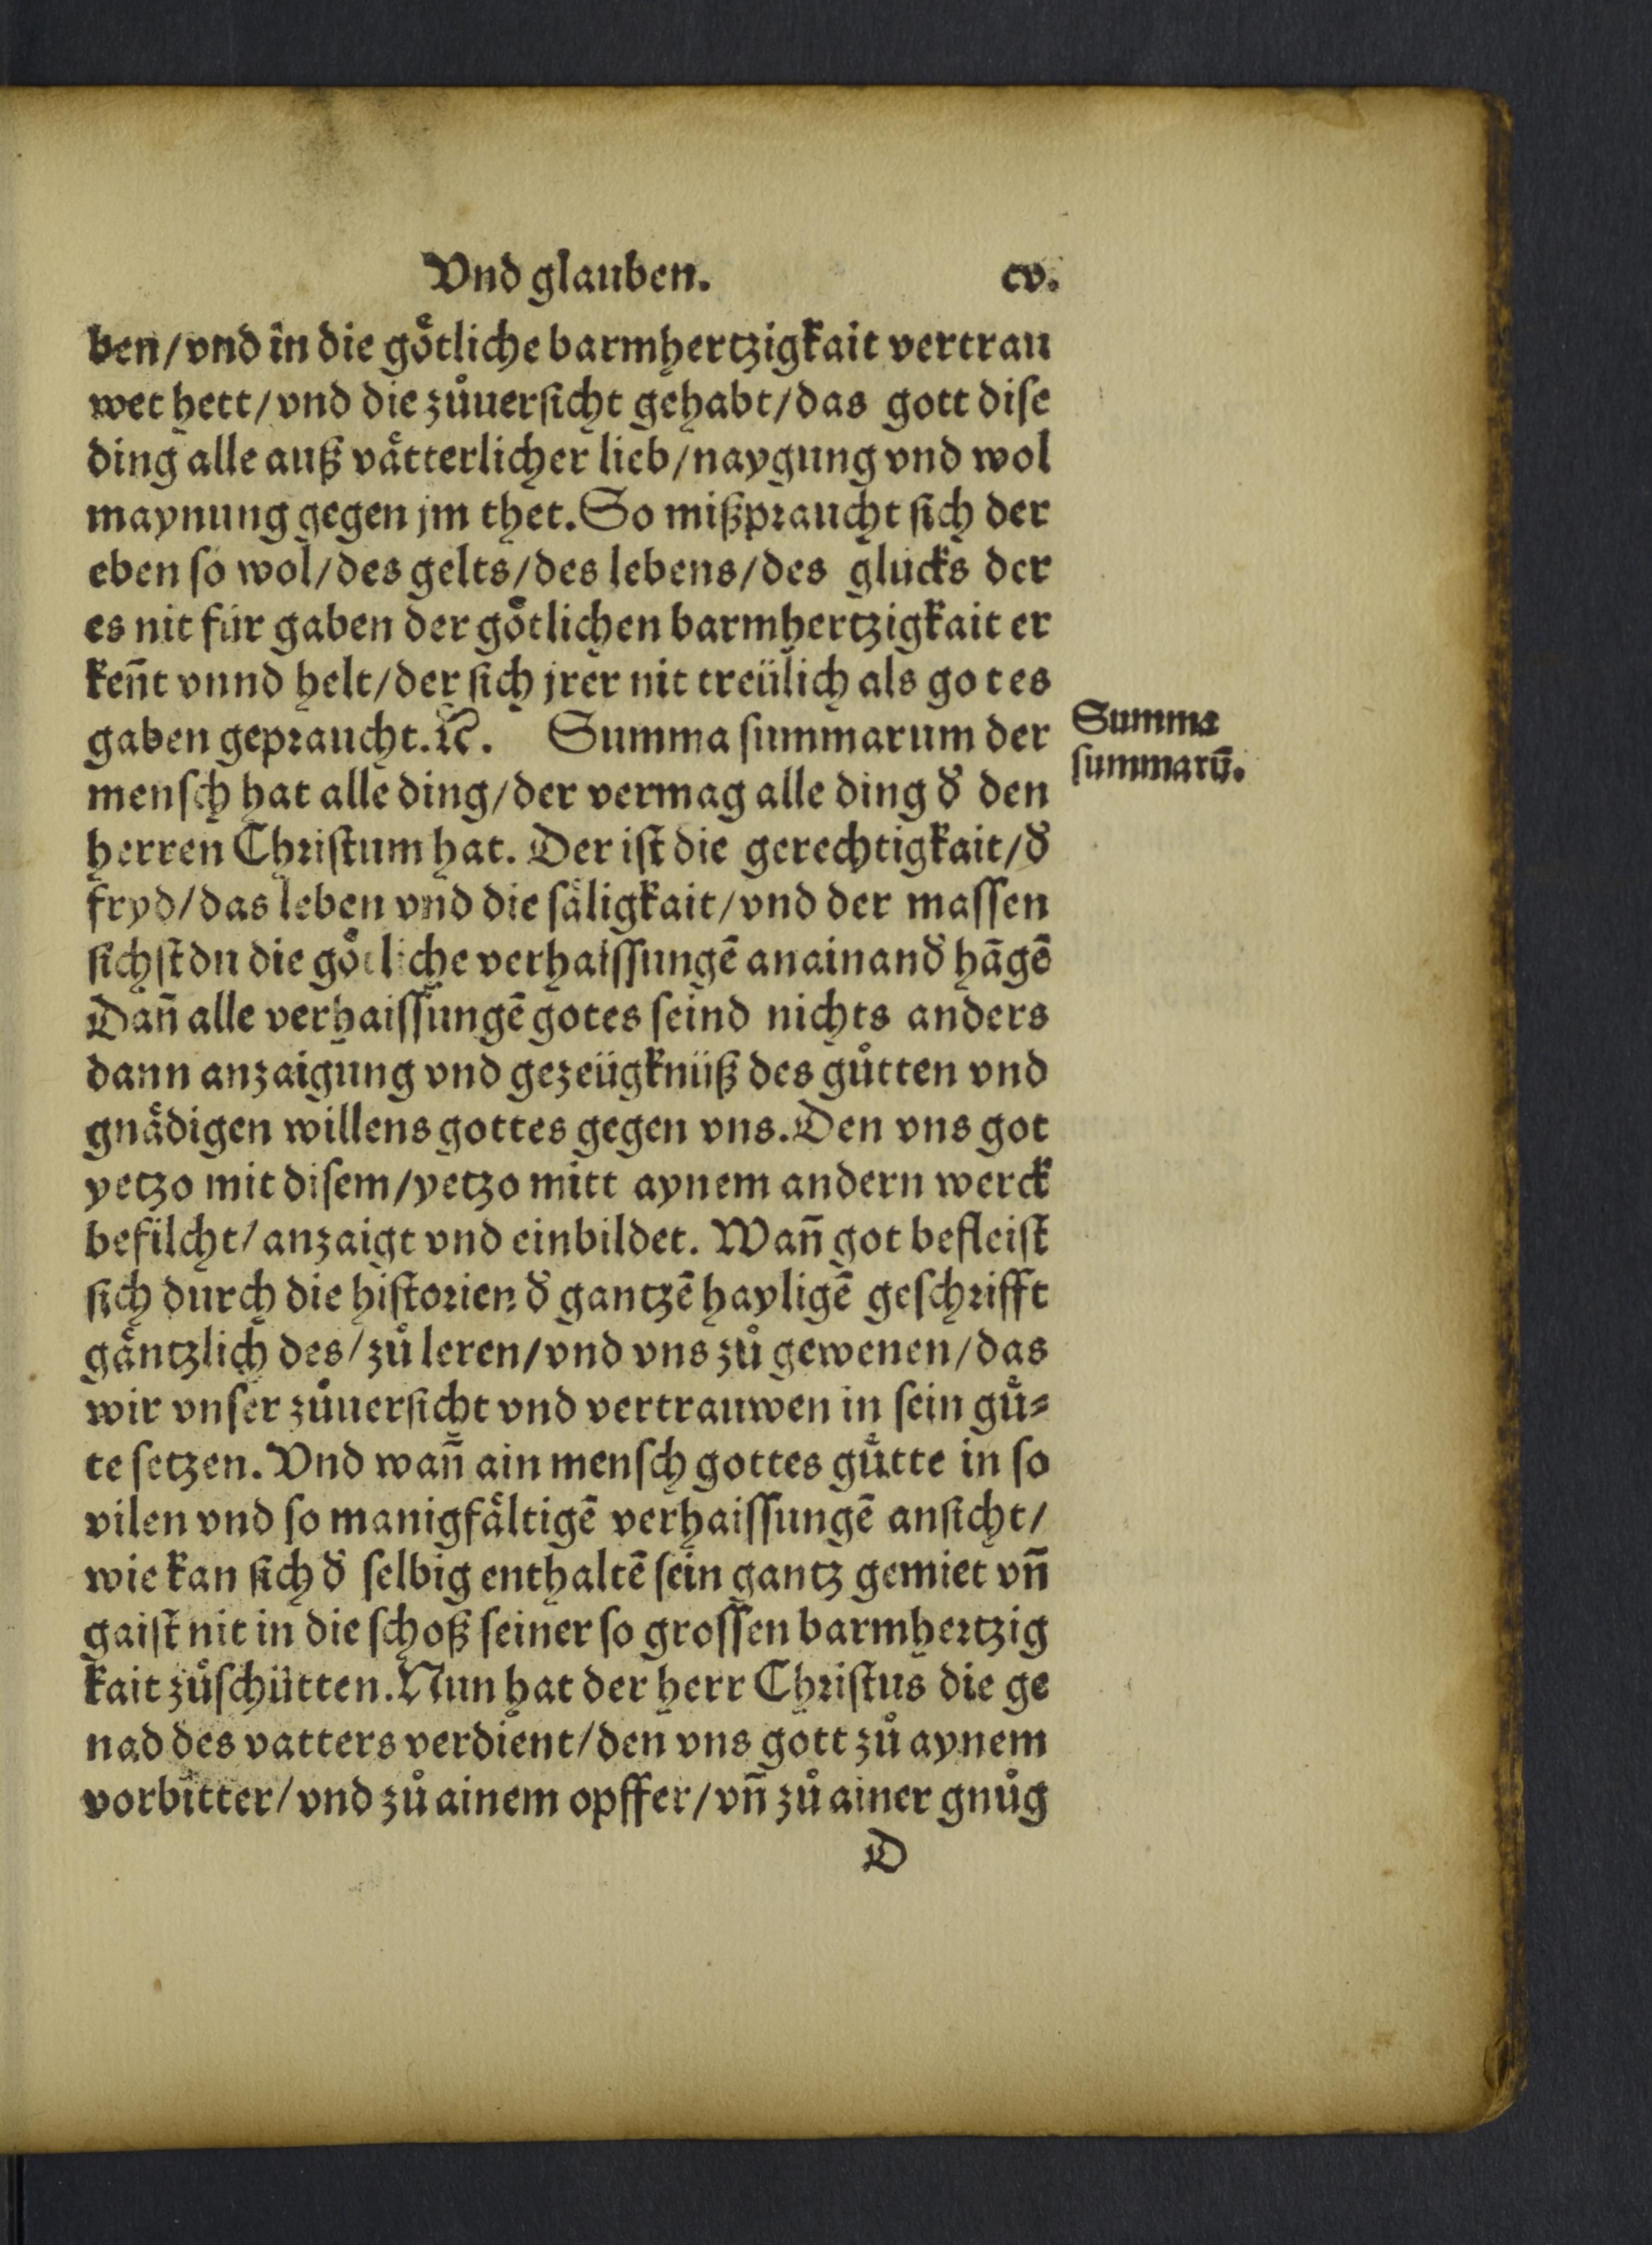 Vnd glauben. cv.
ben/vnd in die goͤtliche barmhertzigkait vertrau
wet hett/vnd die zuͦuerſicht gehabt/das gott diſe
ding alle auß vaͤtterlicher lieb/naygung vnd wol
maynung gegen jm thet. So mißpꝛaucht ſich der
eben ſo wol/des gelts/des lebens/des glucks der
es nit für gaben der goͤtlichen barmhertzigkait er
ken̄t vnnd helt/der ſich jrer nit treülich als gotes
gaben gepꝛaucht.ꝛc. Summa ſummarum der
menſch hat alle ding/der vermag alle ding đ den
herren Chꝛiſtum hat. Der iſt die gerechtigkait/đ
fryd/das leben vnd die ſaͤligkait/vnd der maſſen
ſichſt du die goͤtliche verhaiſſungē anainanđ hāgē
Dan̄ alle verhaiſſungē gotes ſeind nichts anders
dann anzaigung vnd gezeügknüß des guͦtten vnd
gnaͤdigen willens gottes gegen vns. Den vns got
yetzo mit diſem/yetzo mitt aynem andern werck
befilcht/anzaigt vnd einbildet. Wan̄ got befleiſt
ſich durch die hiſtoꝛien đ gantzē hayligē geſchꝛifft
gaͤntzlich des/zuͦ leren/vnd vns zuͦ gewenen/das
wir vnſer zuͦuerſicht vnd vertrauwen in ſein guͤ⸗
te ſetzen. Vnd wan̄ ain menſch gottes guͤtte in ſo
vilen vnd ſo manigfaͤltigē verhaiſſungē anſicht/
wie kan ſich đ ſelbig enthaltē ſein gantz gemiet vn̄
gaiſt nit in die ſchoß ſeiner ſo groſſen barmheꝛtzig
kait zuͦſchütten. Nun hat der herr Chꝛiſtus die ge
nad des vatters verdient/den vns gott zuͦ aynem
vorbitter/vnd zuͦ ainem opffer/vn̄ zuͦ ainer gnuͦg
D
Summa
ſummarū.